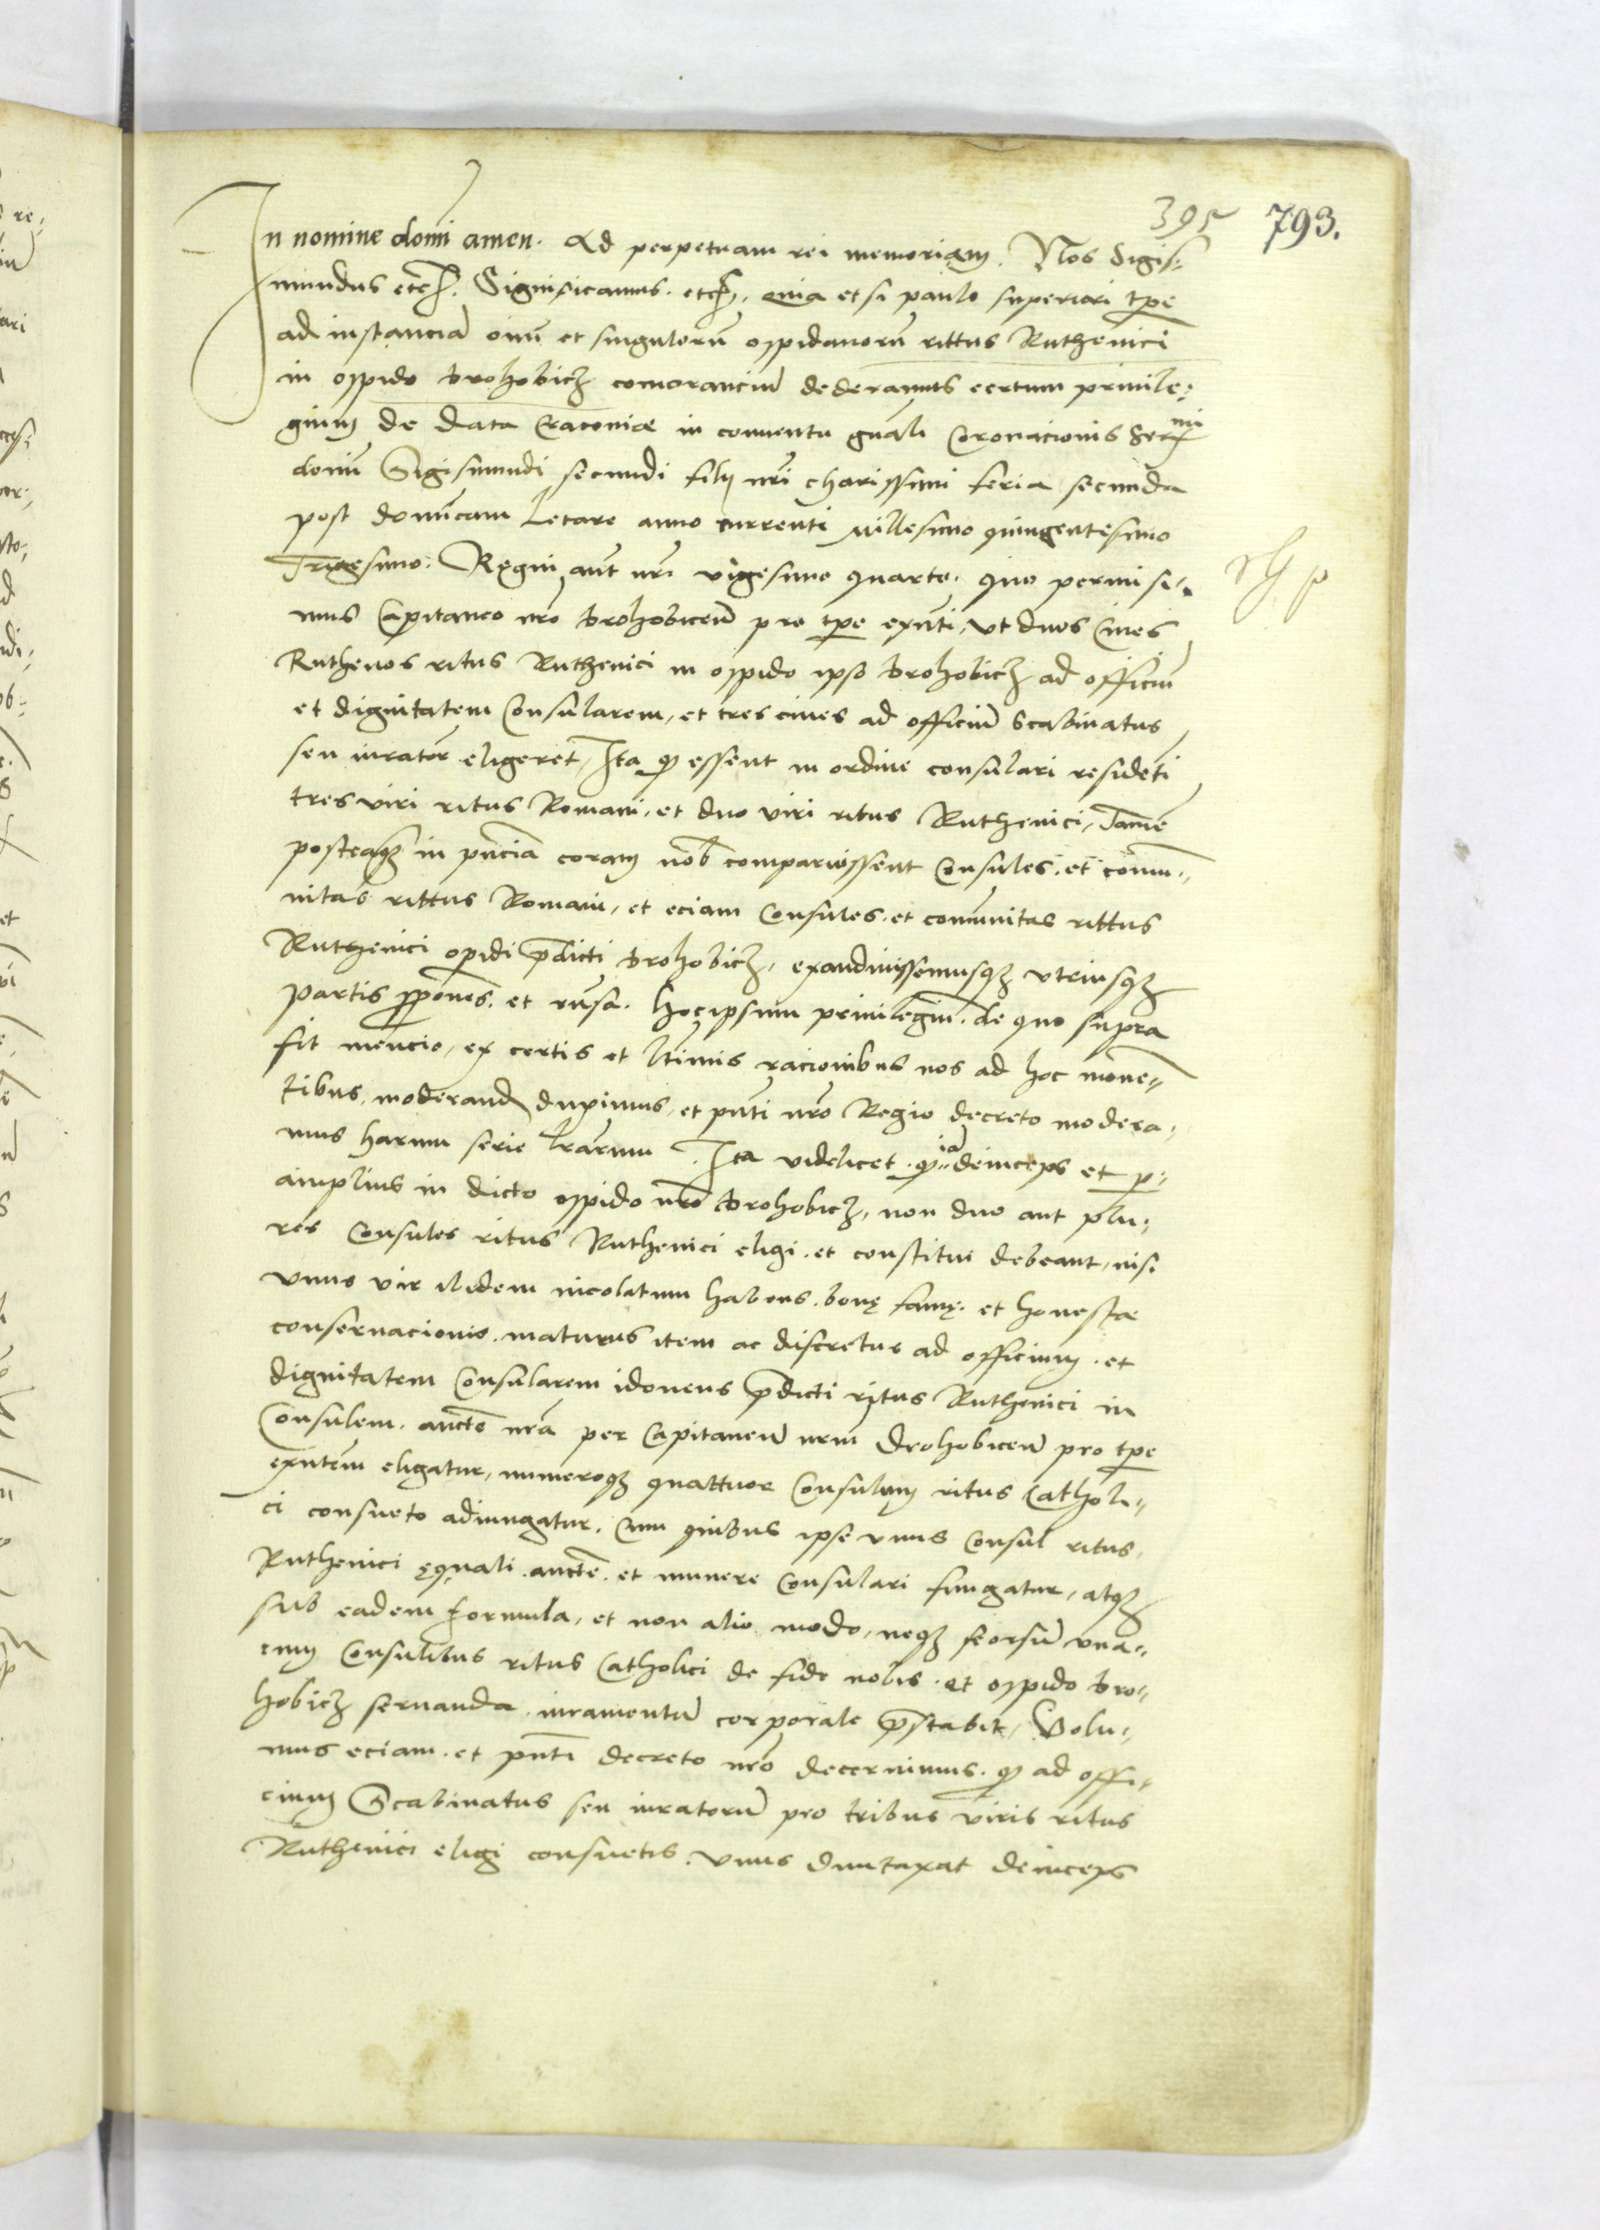 395 793.
In nomine domi amen. Ad perpetuam rei memoriam. Nos Sigis-
mundus etc. Significamus. etc. quia et si paulo superiori tpe
ad instanciā oīm et singulorū oppidanorū rittus Ruthenici
in oppido Drohobicz comoranciū dederamus certum privile-
gium de data Cracoviae in conventu gnāli Coronacionis Sermi
domī Sigismundi secundi filij nrī charissimi feria secunda
post domīcam Letare anno currenti Millesimo quingentesimo
Trigesimo: Regni aut nrī vigesimo quarto. quo permisi-
mus Capitaneo nrō Drohobiceñ pro tpe exnti, vt duos Cives
Ruthenos ritus Ruthenici in oppido ipso Drohobicz ad officiū
et dignitatem Consularem, et tres cives ad officiū Scabinatus
seu iurator eligeret, Ita q essent in ordine consulari residēti
tres viri ritus Romani, et duo viri ritus Ruthenici, Tamē
posteaq in pnciā coram nob comparuissent Consules. et comu-
nitas rittus Romani, et eciam Consules. et comunitas rittus
Ruthenici opidi pdicti Drohobicz, exaudiuissemusq vtriusq
partis ppones. et Hocipsum privilegiū. de quo supra
fit mencio, ex certis et ltimis racionibus nos ad hoc mone-
tibus, moderand duximus, et pnti nrō Regio decreto modera-
mus harum serie lrarum. Ita videlicet. q iā deinceps et
amplius in dicto oppido nrō Drohobicz, non duo aut plu-
res Consules ritus Ruthenici eligi. et constitui debeant, nisi
vnus vir ibidem incolatum habens. bonę famę. et honestae
conservacionis. maturus item ac discretus ad officium. et
dignitatem Consularem idoneus pdicti ritus Ruthenici in
Consulem. aucte nrā per Capitaneū nrm Drohobiceñ pro tpe
exntem eligatur, numeroq quattuor Consulum ritus Catholi-
ci consueto adiungatur. Cum quibus ipse vnus Consul ritus
Ruthenici ęquali. aucte. et munere Consulari fungatur, atq
sub eadem formula, et non alio modo, neq seorsū vna-
cum Consulibus ritus Catholici de fide nobis. et oppido Dro-
hobicz servanda. iuramentū corporale pstabit, Volu-
mus eciam. et pnti decreto nrō decernimus. q ad offi-
cium Scabinatus seu iuratorū pro tribus viris ritus
Ruthenici eligi consuetis. vnus duntaxat deinceps